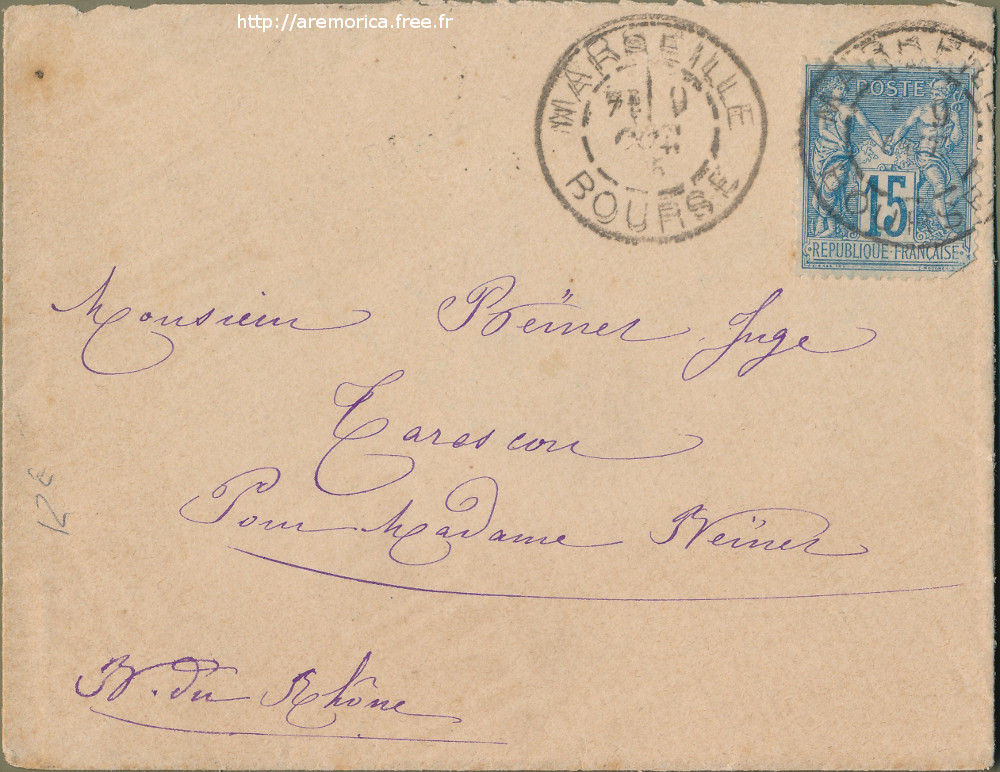 http://aremorica.free.fr
MARSEILLE
BOURSE
POSTE
15
REPUBLIQUE FRANÇAISE
Monsieur Juge
Tarascon
Pour Madame
B. du Rhône
12€